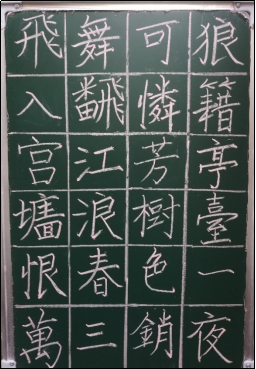 狼籍亭臺一夜
可憐芳樹色銷
舞飜江浪春三
飛入宮墻恨萬